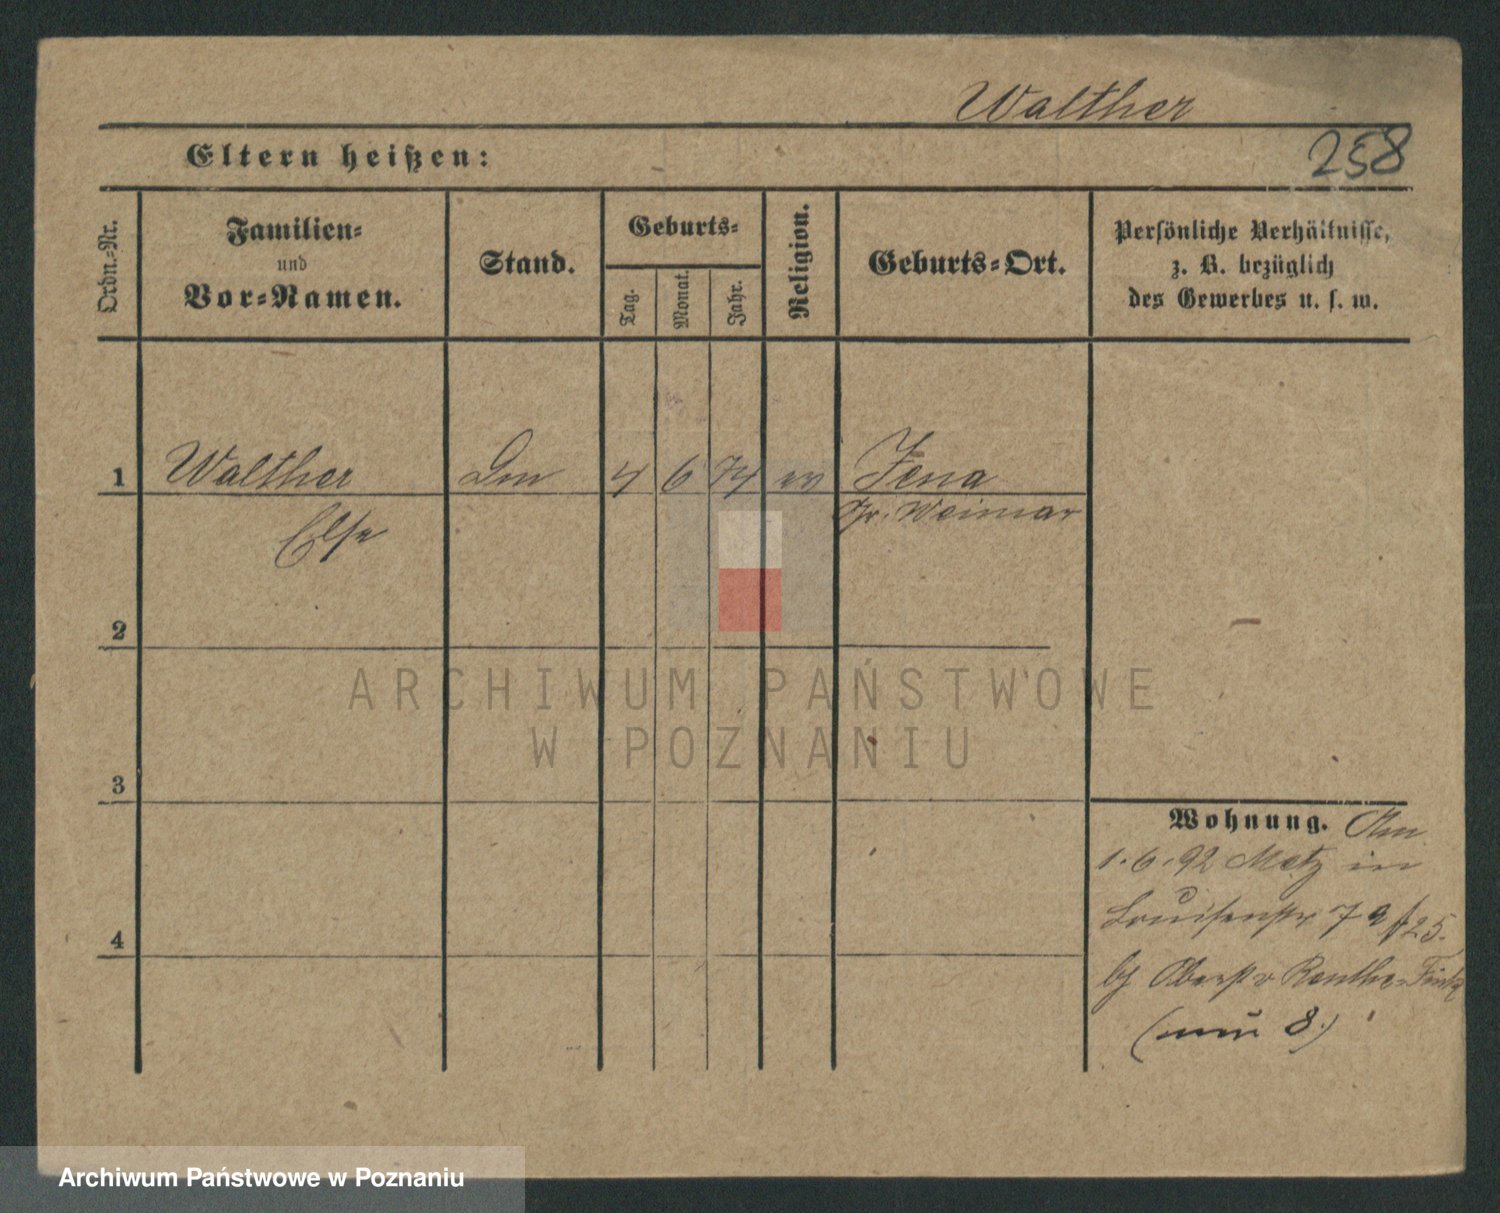 Walther
258
Eltern heißen:
Ordn.-Nr.
Familien-
und
Vor-Namen.
Stand.
Geburts-
Tag.
Monat.
Jahr.
Religion.
Geburts-Ort.
Persönliche Verhältnisse,
z. B. bezüglich
des Gewerbes u. s. w.
1 Walther 4 6 74 ev Jena
Else Gr. Weimar
2
3
4
Wohnung. Am
1.6.92 Metz in
Louisenstr 7a
bei Oberst v
(neu 8.)
ARCHIWUM PAŃSTWOWE
W POZNANIU
Archiwum Państwowe w Poznaniu